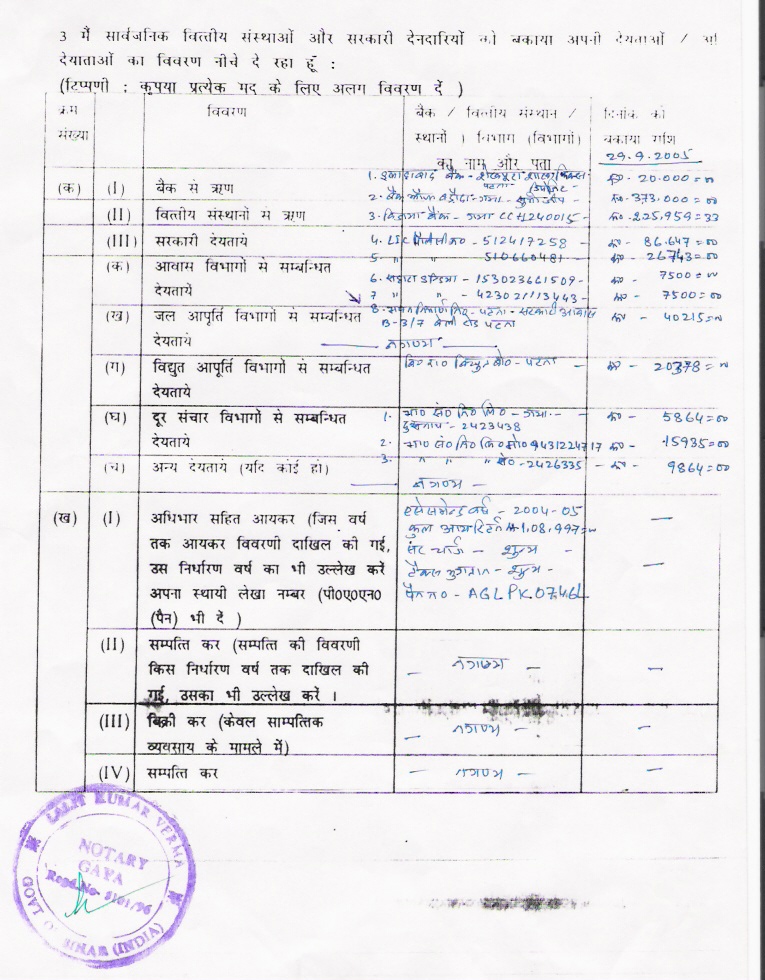 3 मैं सार्वजनिक वित्तीय संस्थाओं और सरकारी देनदारियों को बकाया अपनी देयताओं /
देयाताओं का विवरण नीचे दे रहा हूँ :
(टिप्पणी : कृपया प्रत्येक मद के लिए अलग विवरण दें )
क्रम
संख्या
विवरण
बैंक / वित्तीय संस्थान /
स्थानों ) विभाग (विभागों)
का नाम और पता
दिनांक को
बकाया राशि
29.9.2005
(क) (I) बैंक से ऋण
1. इलाहाबाद बैंक - शेखपुरा शाखा
पटना
रू० - 20.000=00
2. बैंक ऑफ बड़ौदा - गया -
रू० - 373.000=00
(II) वित्तीय संस्थानों से ऋण
3. केनरा बैंक - गया CCH240015 -
रू० - 225.959=33
(III) सरकारी देयताये
4. LIC - 512417258 -
रू० - 86.647=00
5. " " 510660481 -
रू० - 26743=00
(क) आवास विभागों से सम्बन्धित
देयताये
6. सहारा इन्डिया - 153023661509 -
रू० - 7500=00
7 " " - 423021113443 -
रू० - 7500=00
(ख) जल आपूर्ति विभागों से सम्बन्धित
देयताये
8. - पटना - सरकारी आवास
B-3/7 बेली रोड पटना
रू० - 40215=00
नगण्य
(ग) विद्युत आपूर्ति विभागों से सम्बन्धित
देयताये
बि० रा० विद्युत बो० - पटना -
रू० - 20378=00
(घ) दूर संचार विभागों से सम्बन्धित
देयताये
1. भा० सं० नि० लि० - गया -
दूरभाष - 2423438
रू० - 5864=00
2. भा० सं० नि० लि० मो० 9431224717
रू० - 15935=00
3. " " " - 2426335 -
रू० - 9864=00
(च) अन्य देयताये (यदि कोई हो)
नगण्य -
(ख) (I) अधिभार सहित आयकर (जिम वर्ष
तक आयकर विवरणी दाखिल की गई,
उस निर्धारण वर्ष का भी उल्लेख करें
अपना स्थायी लेखा नम्बर (पी०ए०एन०
(पैन) भी दें )
एसेसमेन्ट वर्ष - 2004-05
कुल आय रिटर्न 1,08,997=00
सर चार्ज - शून्य -
टैक्स भुगतान - शून्य -
पैन न० - AGLPK0746L
(II) सम्पत्ति कर (सम्पत्ति की विवरणी
किस निर्धारण वर्ष तक दाखिल की
गई, उसका भी उल्लेख करें ।
- नगण्य -
(III) बिक्री कर (केवल साम्पत्तिक
व्यवसाय के मामले में)
- नगण्य -
(IV) सम्पत्ति कर
- नगण्य -
LALIT KUMAR VERMA
NOTARY
GAYA
Regd.No- 8101/96
GOVT OF BIHAR (INDIA)